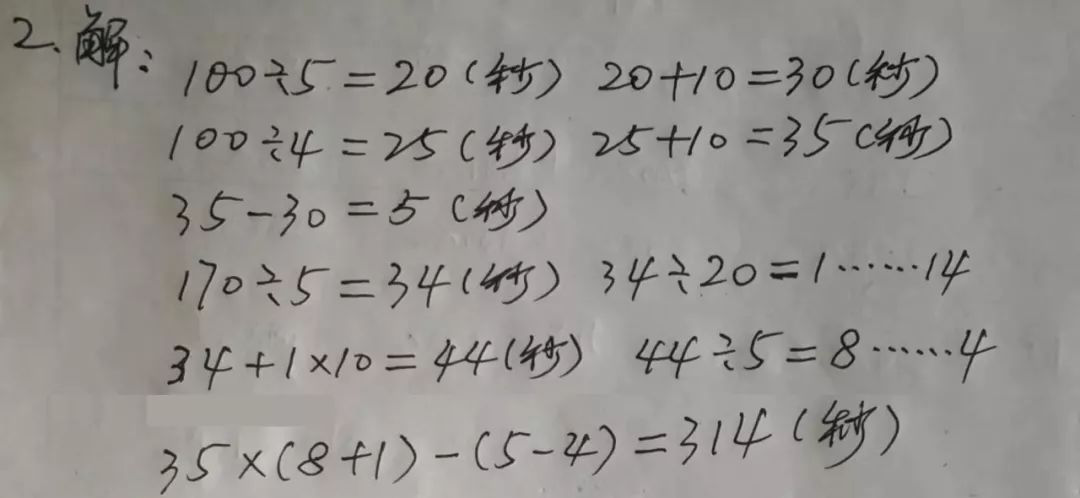 2、解：
100÷5=20(秒) 20+10=30(秒)
100÷4=25(秒) 25+10=35(秒)
35-30=5(秒)
170÷5=34(秒) 34÷20=1……14
34+1×10=44(秒) 44÷5=8……4
35×(8+1)-(5-4)=314(秒)